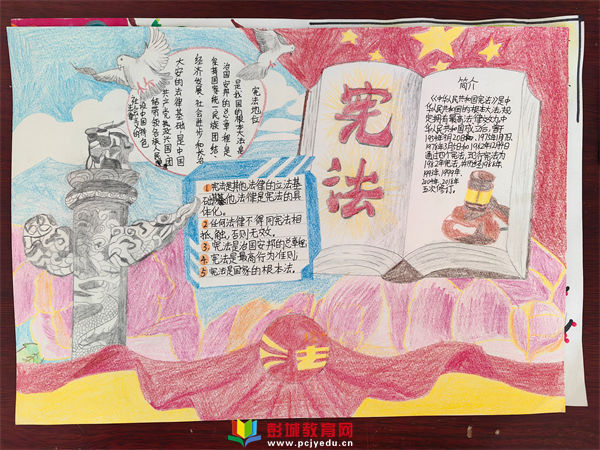 宪法地位
是我国的根本大法,是
治国安邦的总章程,是
保持国家统一、民族团结、
经济发展、社会进步和长治
久安的法律基础,是中国
共产党执政兴国、团
结带领各族人民
建设中国特色
社会主义的
1 宪法是其他法律的立法基
础,其他法律是宪法的具
体化。
2 任何法律不得同宪法相
抵触,否则无效。
3. 宪法是治国安邦的总章程
4 宪法是最高行为准则;
5 宪法是国家的根本法。
宪法
简介
《中华人民共和国宪法》是中
华人民共和国的根本大法,规
定拥有最高法律效力。中
华人民共和国成立后,曾于
1954年9月20日、1975年1月17日、
1978年3月5日和1982年12月4日
通过四个宪法,现行宪法为
1982年宪法,并历经1988年、
1993年、1999年、
2004年、2018年
五次修订。
法
彭城教育网
www.pcjyedu.cn